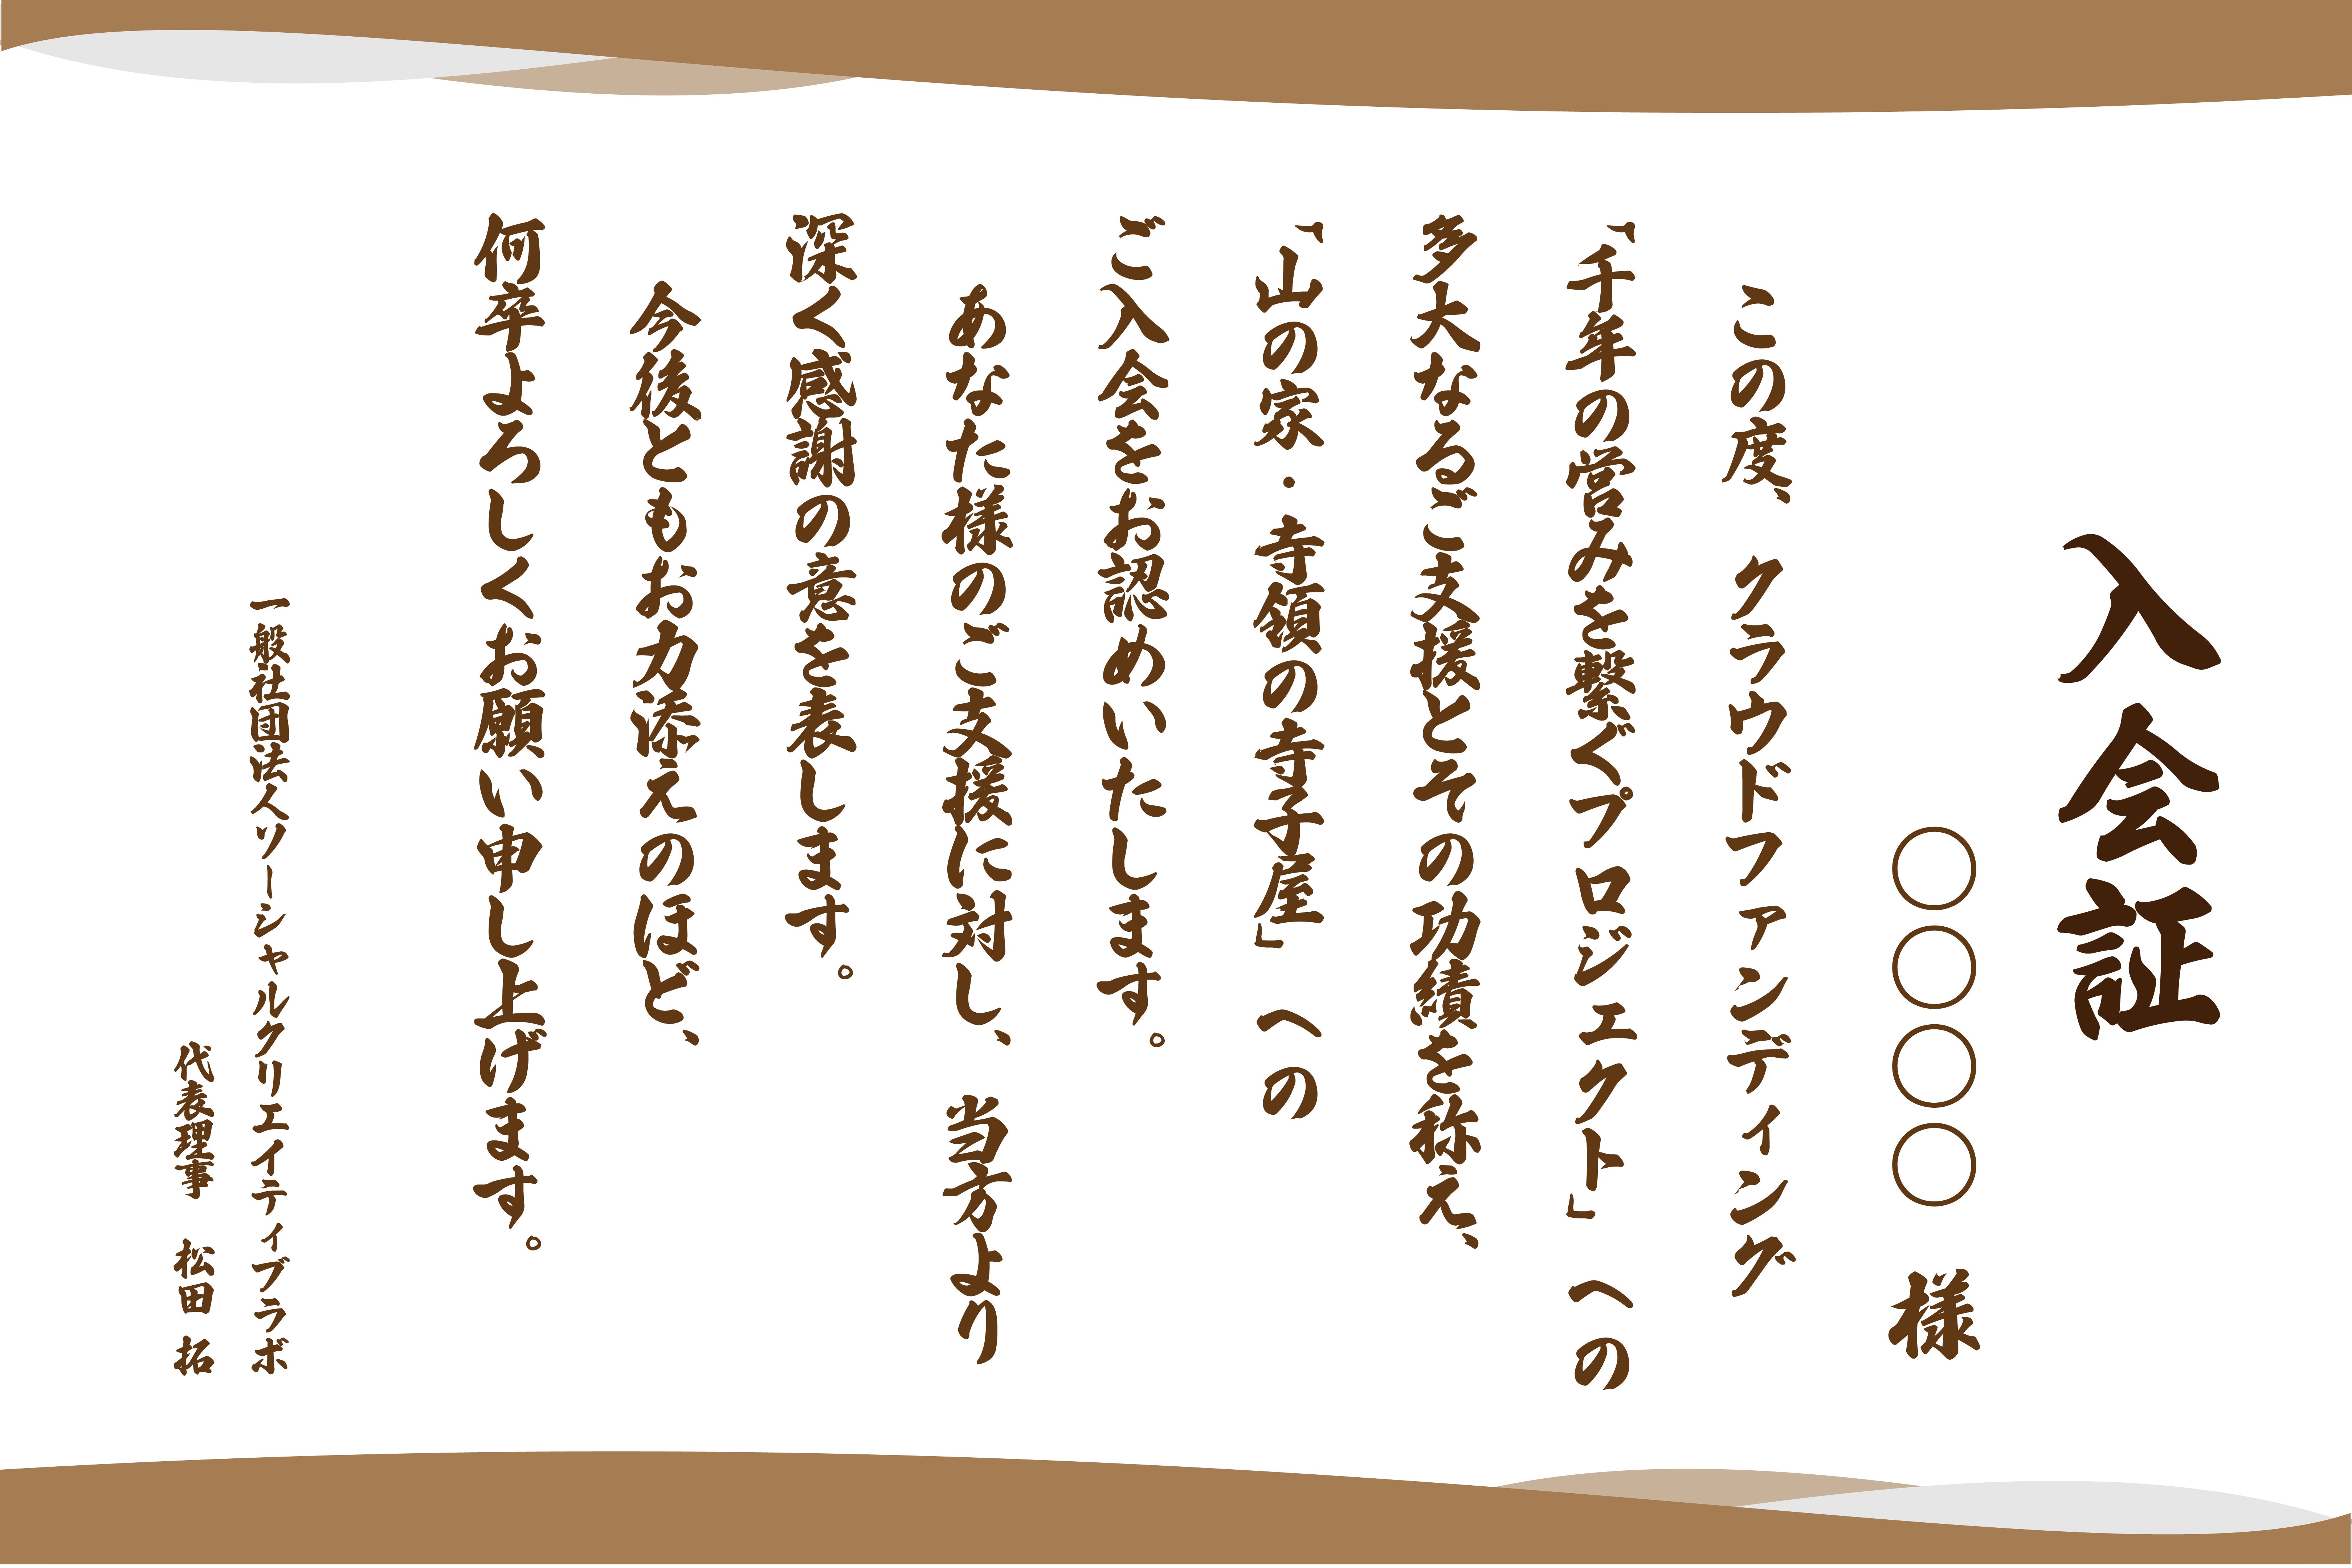 入会証
○○○○ 様
この度、クラウドファンディング
「千年の営みを繋ぐプロジェクト」への
多大なるご支援とその功績を称え、
「山の泉・幸領の寺子屋」への
ご入会をお認めいたします。
あなた様のご支援に対し、当方より
深く感謝の意を表します。
今後ともお力添えのほど、
何卒よろしくお願い申し上げます。
一般社団法人ソーシャルクリエイティブラボ
代表理事 松田 拓